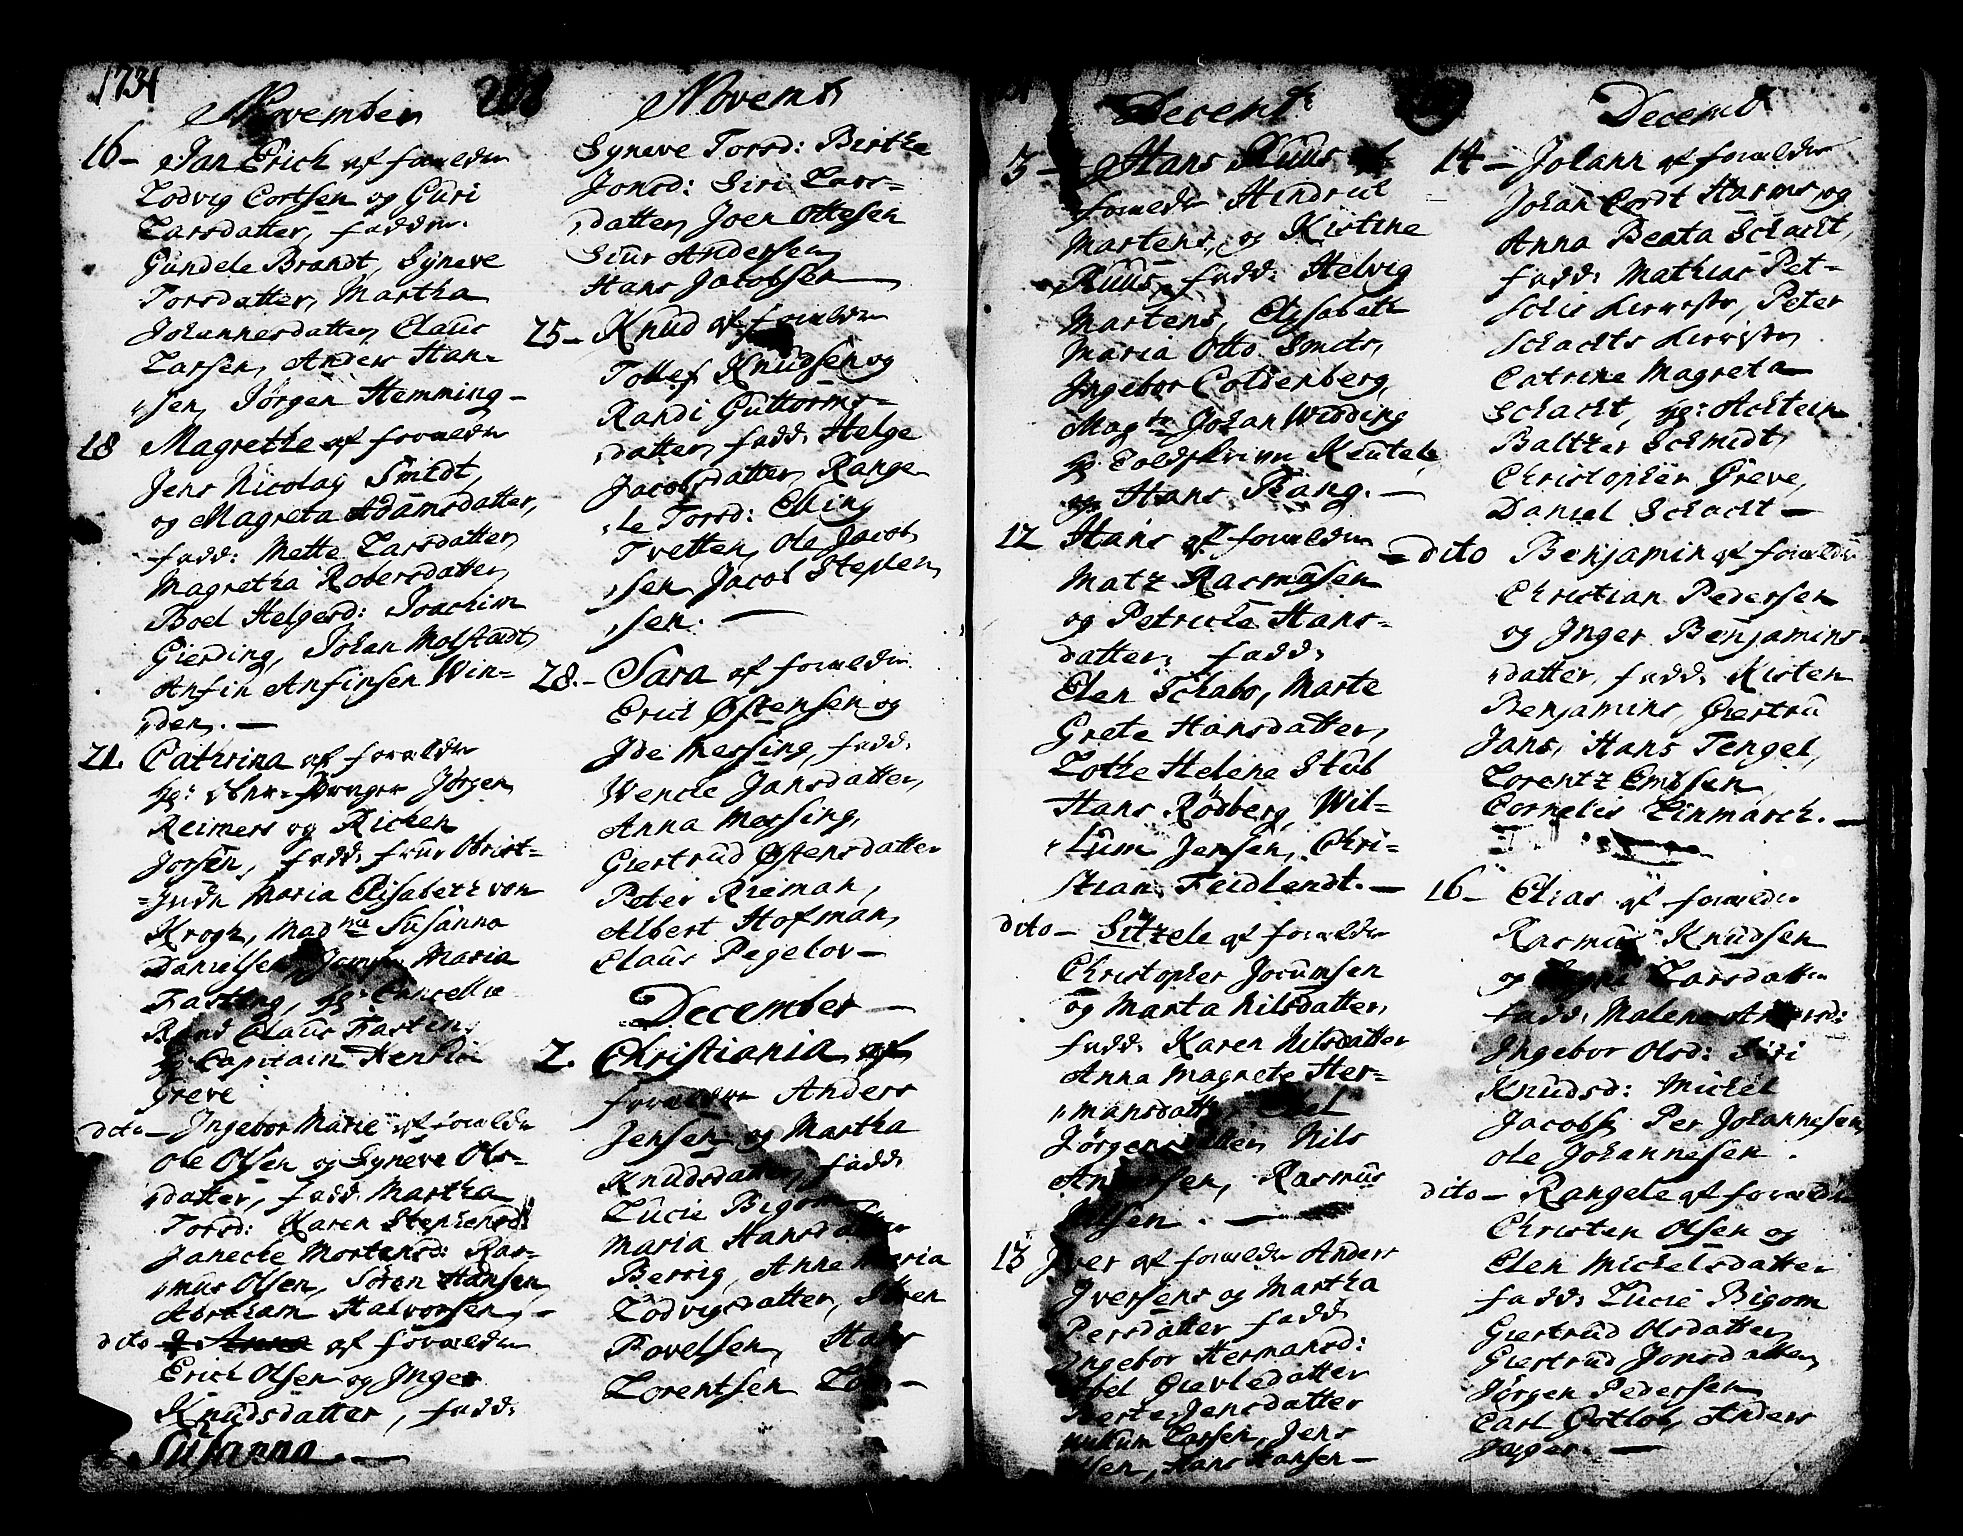 1731
November
16 - Jan Erich af forældre
Lodvig Cortsen og Guri
Larsdatter, faddere.
Gundele Brandt, Syneve
Torsdatter, Martha
Johannesdatter, Claus
Larsen, Anders Han-
sen, Jörgen Hemming-
18 Magrethe af forældre
Jens Nicolay Smidt,
og Magreta Adamsdatter,
fadd: Mette Larsdatter,
Magretha Robersdatter,
Boel Helgesd: Joachim
Gierding, Johan Molstadt,
Anfin Anfinsen Win-
den. -
21. Cathrina af forældre
Hr: Jörgen
Reimers og Ricken
Jorsen, fadd: frue Obrist-
Maria Elisabeth von
Krogh, Mad Susanna
Danielsen, Maria
Fasting, Hr: Cancellie-
Raad Claus Fasting
Hr Capitain Henrich
Greve
dito - Ingebor Marie af forældre
Ole Olsen og Syneve Ols-
datter, fadd. Martha
Torsd: Karen Stephensd:
Janecke Mortensd: Ras-
mus Olsen, Sören Hansen,
Abraham Halvorsen, -
dito Anna af forældre
Erich Olsen og Inger
Knudsdatter, fadd:
Susanna. -
Novemb
Syneve Torsd: Birthe
Jonsd: Siri Lars-
datter, Joen Ottesen
Siur Andersen,
Hans Jacobsen -
25 - Knud af forældre
Tollef Knudsen og
Randi Guttorms-
datter, fadd: Helge
Jacobsdatter, Range-
le Torsd: Elling
Tvetten, Ole Jacob-
sen, Jacob Stephen-
sen. -
28. - Sara af forældre
Erich Östensen og
Ide Messing, fadd.
Wencke Jansdatter,
Anna Messing,
Giertrud Östensdatter
Peter Rieman,
Albert Hofman,
Claus Pegelov -
December -
2. Christiania af
forældre Anders
Jensen og Martha
Knudsdatter, fadd:
Lucie Bigom
Maria Hansdatter
Berrig, Anne Maria
Lodvigsdatter,
Povelsen, Hans
Lorentsen
Decemb
3 - Hans Kuus af
forældre Hindrich
Martens, og Kistine
Kuus, fadd: Helvig
Martens, Elisabeth
Maria Otto Smids,
Ingebor Coldenberg,
Johan Widding
Hr Toldskriver
og Hans Rang. -
12 Hans af forældre
Matz Rasmusen
og Petricke Hans-
datter, fadd:
Elen Schabo, Marte
Grete Hansdatter,
Lothe Helene Stub
Hans Rödberg, Wil-
lum Jensen, Chri-
stian Feidlendt. -
dito - Sitzele af forældre
Christopher Jocumsen
og Marta Nilsdatter,
fadd: Karen Nilsdatter
Anna Magrete Her-
mansdatter,
Nils
Rasmus
13 Iver af forældre Anders
Iversens og Martha
Persdatter fadd:
Ingebor Hermansd:
Giertedatter
Berte Jensdatter
Larsen, Jens
Hans Hansen -
Decemb
14 - Johann af forældre
Johan Cordt Harms, og
Anna Beata Schacht,
fadd: Mathias Pet-
Peter
Schachts
Catrine Magreta
Schacht, Hr:
Baltzer Schmidt,
Christopher Greve,
Daniel Schacht -
dito Benjamin af forældre
Christian Pedersen
og Inger Benjamins-
datter, fadd: Kisten
Benjamins, Giertru
Jans, Hans Tengel,
Lorentz Embsen
Cornelis Einmarck. -
16 - Elias af forældre
Rasmus Knudsen
og Larsdatter
fadd: Malene
Ingebor Olsd: Siri
Knudsd: Michel
Jacobs, Per Johannesen,
Ole Johannesen.
dito - Rangele af forældre
Christen Olsen og
Elen Michelsdatter
fadd: Lucie Bigom
Giertrud Olsdatter
Giertrud Jonsdatter,
Jörgen Pedersen
Carl Gotlob, Anders
Jæger. -